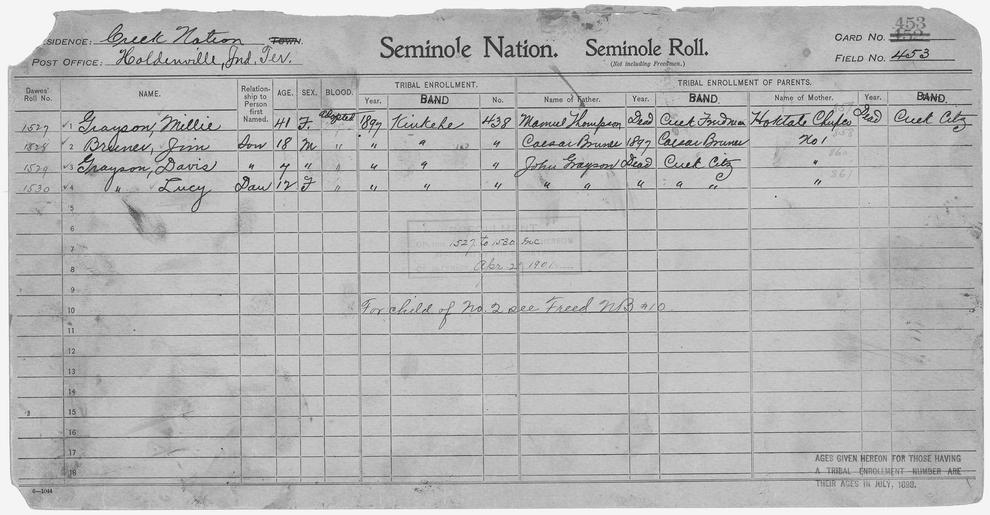 453
RESIDENCE: Creek Nation TOWN. Seminole Nation. Seminole Roll. CARD NO.
POST OFFICE: Holdenville, Ind. Ter. (Not including Freedmen.) FIELD NO. 453
Dawes' Roll No. NAME. Relationship to Person first Named. AGE. SEX. BLOOD. TRIBAL ENROLLMENT. TRIBAL ENROLLMENT OF PARENTS.
Year. BAND No. Name of Father. Year. BAND. Name of Mother. Year. BAND.
1527 1 Grayson, Millie 41 F. adopted 1897 Kinkehe 438 Thompson Dead Creek Fredman Hoktate Dead Creek Citz
1528 2 Bruner, Jim Son 18 M " " " " Caesar Bruner 1897 Caesar Bruner No 1
1529 3 Grayson, Davis " 7 " " " " " John Grayson Dead Creek Citz "
1530 4 " Lucy Dau 12 F " " " " " " " " " "
5
6
7 1527 to 1530 inc
8 Apr 2 1901
9
10 For child of No. 2 see Freed NB #10
11
12
13
14
15
16
17
18
AGES GIVEN HEREON FOR THOSE HAVING
A TRIBAL ENROLLMENT NUMBER ARE
THEIR AGES IN JULY, 1898.
6—1044